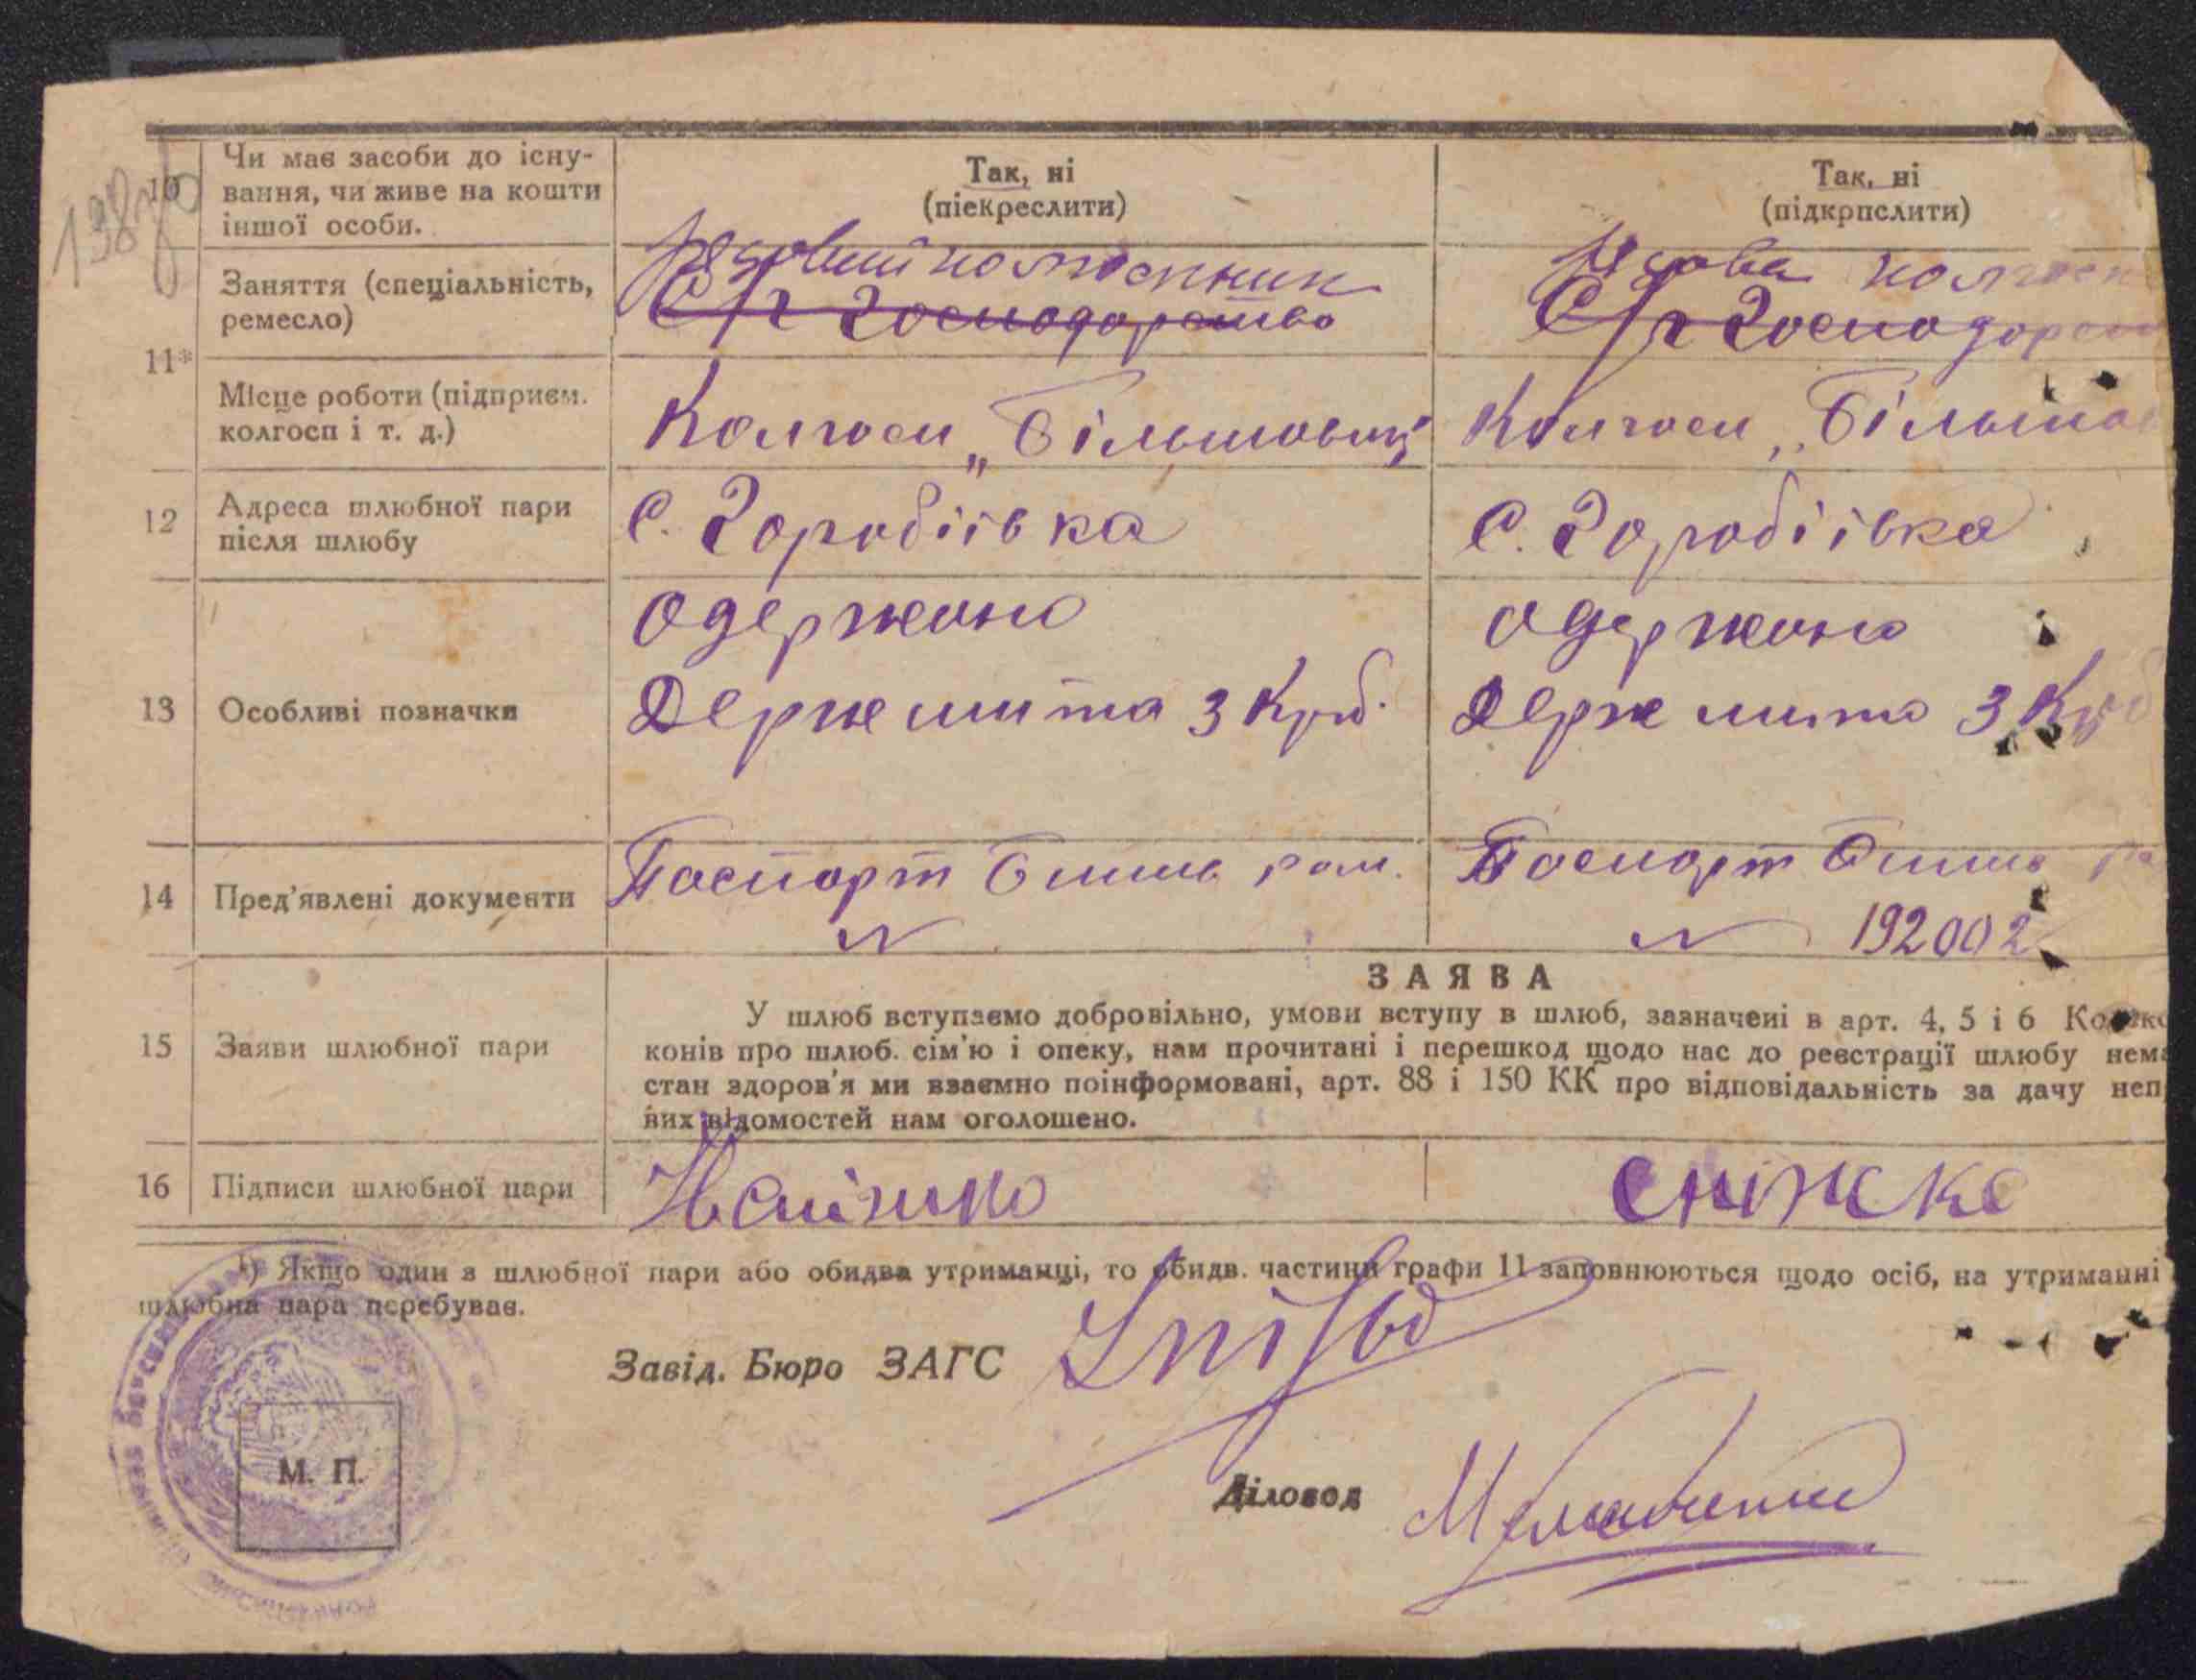 10
Чи має засоби до існу-
вання, чи живе на кошти
іншої особи.
Так, ні
(піекреслити)
Так, ні
(підкрпслити)
11*
Заняття (спеціальність,
ремесло)
рядовий колгоспник
С/г Господарство
рядова колгосп
С/г Господарс
Місце роботи (підприєм.
колгосп і т. д.)
Колгосп „Більшовик"
Колгосп „Більшов
12
Адреса шлюбної пари
після шлюбу
с. Горобіївка
с. Горобіївка
13
Особливі позначки
Одержано
Держ мита 3 Крб.
Одержано
Держ мита 3 Крб
14
Пред'явлені документи
Паспорт
N
Паспорт
N 192002
15
Заяви шлюбної пари
ЗАЯВА
У шлюб вступаємо добровільно, умови вступу в шлюб, зазначені в арт. 4, 5 і 6
конів про шлюб. сім'ю і опеку, нам прочитані і перешкод щодо нас до реєстрації шлюбу нема
стан здоров'я ми взаємно поінформовані, арт. 88 і 150 КК про відповідальність за дачу неп
вих відомостей нам оголошено.
16
Підписи шлюбної пари
сніжко
¹) Якщо один з шлюбної пари або обидва утриманці, то обидв. частини графи 11 заповнюються щодо осіб, на утриманні
шлюбна пара перебуває.
Завід. Бюро ЗАГС
М. П.
Діловод